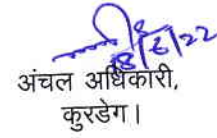 8/6/22
अंचल अधिकारी,
कुरडेग।